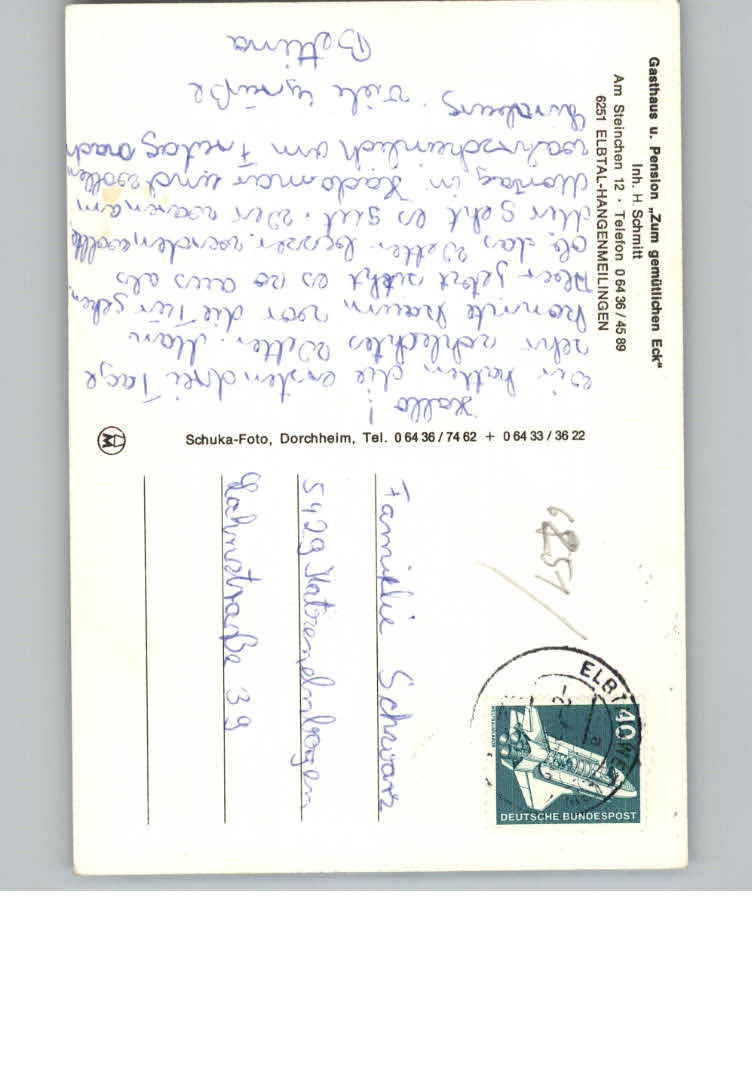 Gasthaus u. Pension „Zum gemütlichen Eck"
Inh. H. Schmitt
Am Steinchen 12 · Telefon 0 64 36 / 45 89
6251 ELBTAL-HANGENMEILINGEN
Hallo!
Wir hatten die ersten drei Tage
sehr schlechtes Wetter. Man
konnte kaum vor die Tür gehen.
Aber jetzt sieht es so aus als
ob das Wetter besser werden wollte.
Mir geht es gut. Wir waren am
Montag in Hadamar und wollen
wahrscheinlich am Freitag nach
Limburg. Viele Grüße
Bettina
Schuka-Foto, Dorchheim, Tel. 0 64 36 / 74 62 + 0 64 33 / 36 22
Familie Schwarz
5429 Katzenelnbogen
Lahnstraße 39
6251
ELBT
40
DEUTSCHE BUNDESPOST